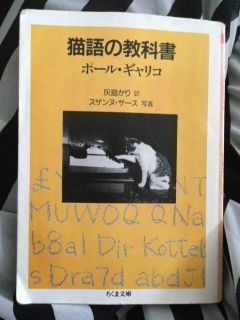 猫語の教科書
ポール・ギャリコ
灰島かり 訳
スザンヌ・サース 写真
£Y NT
MUWOQ QNa
b8al Dir Kottet
s Dra7d abdJ!
ちくま文庫